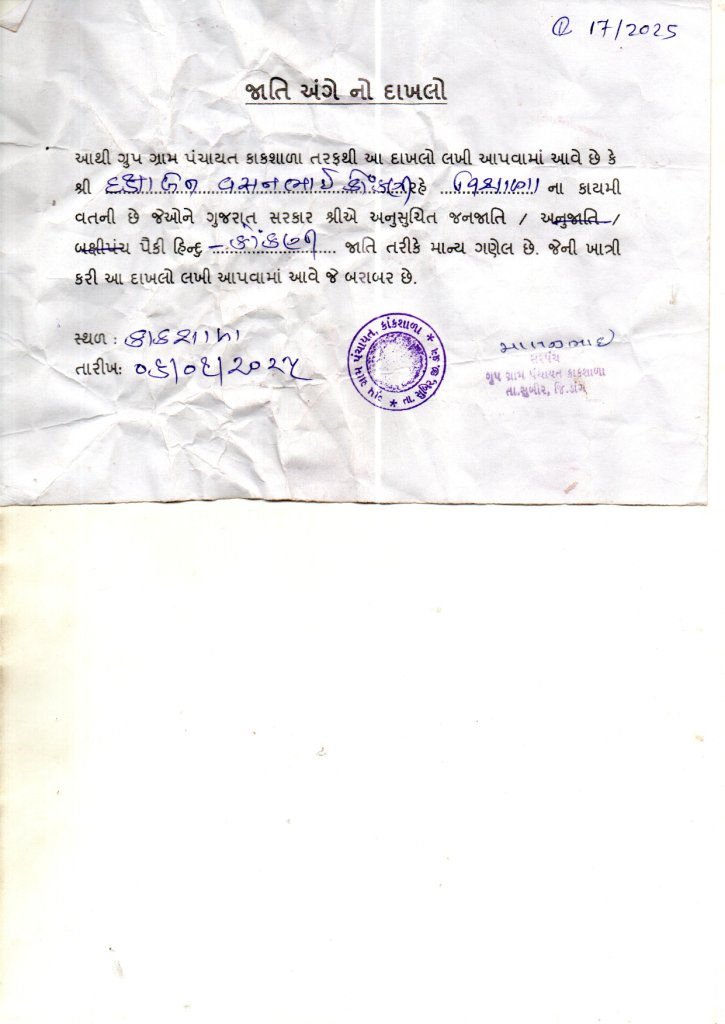 17/2025
જાતિ અંગે નો દાખલો
આથી ગ્રુપ ગ્રામ પંચાયત કાકશાળા તરફથી આ દાખલો લખી આપવામાં આવે છે કે
શ્રી દક્ષાબેન રહે ના કાયમી
વતની છે જેઓને ગુજરાત સરકાર શ્રીએ અનુસુચિત જનજાતિ / અનુજાતિ /
બક્ષીપંચ પૈકી હિન્દુ - કોંકણી જાતિ તરીકે માન્ય ગણેલ છે. જેની ખાત્રી
કરી આ દાખલો લખી આપવામાં આવે જે બરાબર છે.
સ્થળ : કાકશાળા
તારીખ: ૦૬/૦૬/૨૦૨૫
ગ્રુપ ગ્રામ પંચાયત, કાંકશાળા * તા. સુબીર, જી. ડાંગ *
સરપંચ
ગ્રુપ ગ્રામ પંચાયત કાકશાળા
તા.સુબીર, જિ.ડાંગ